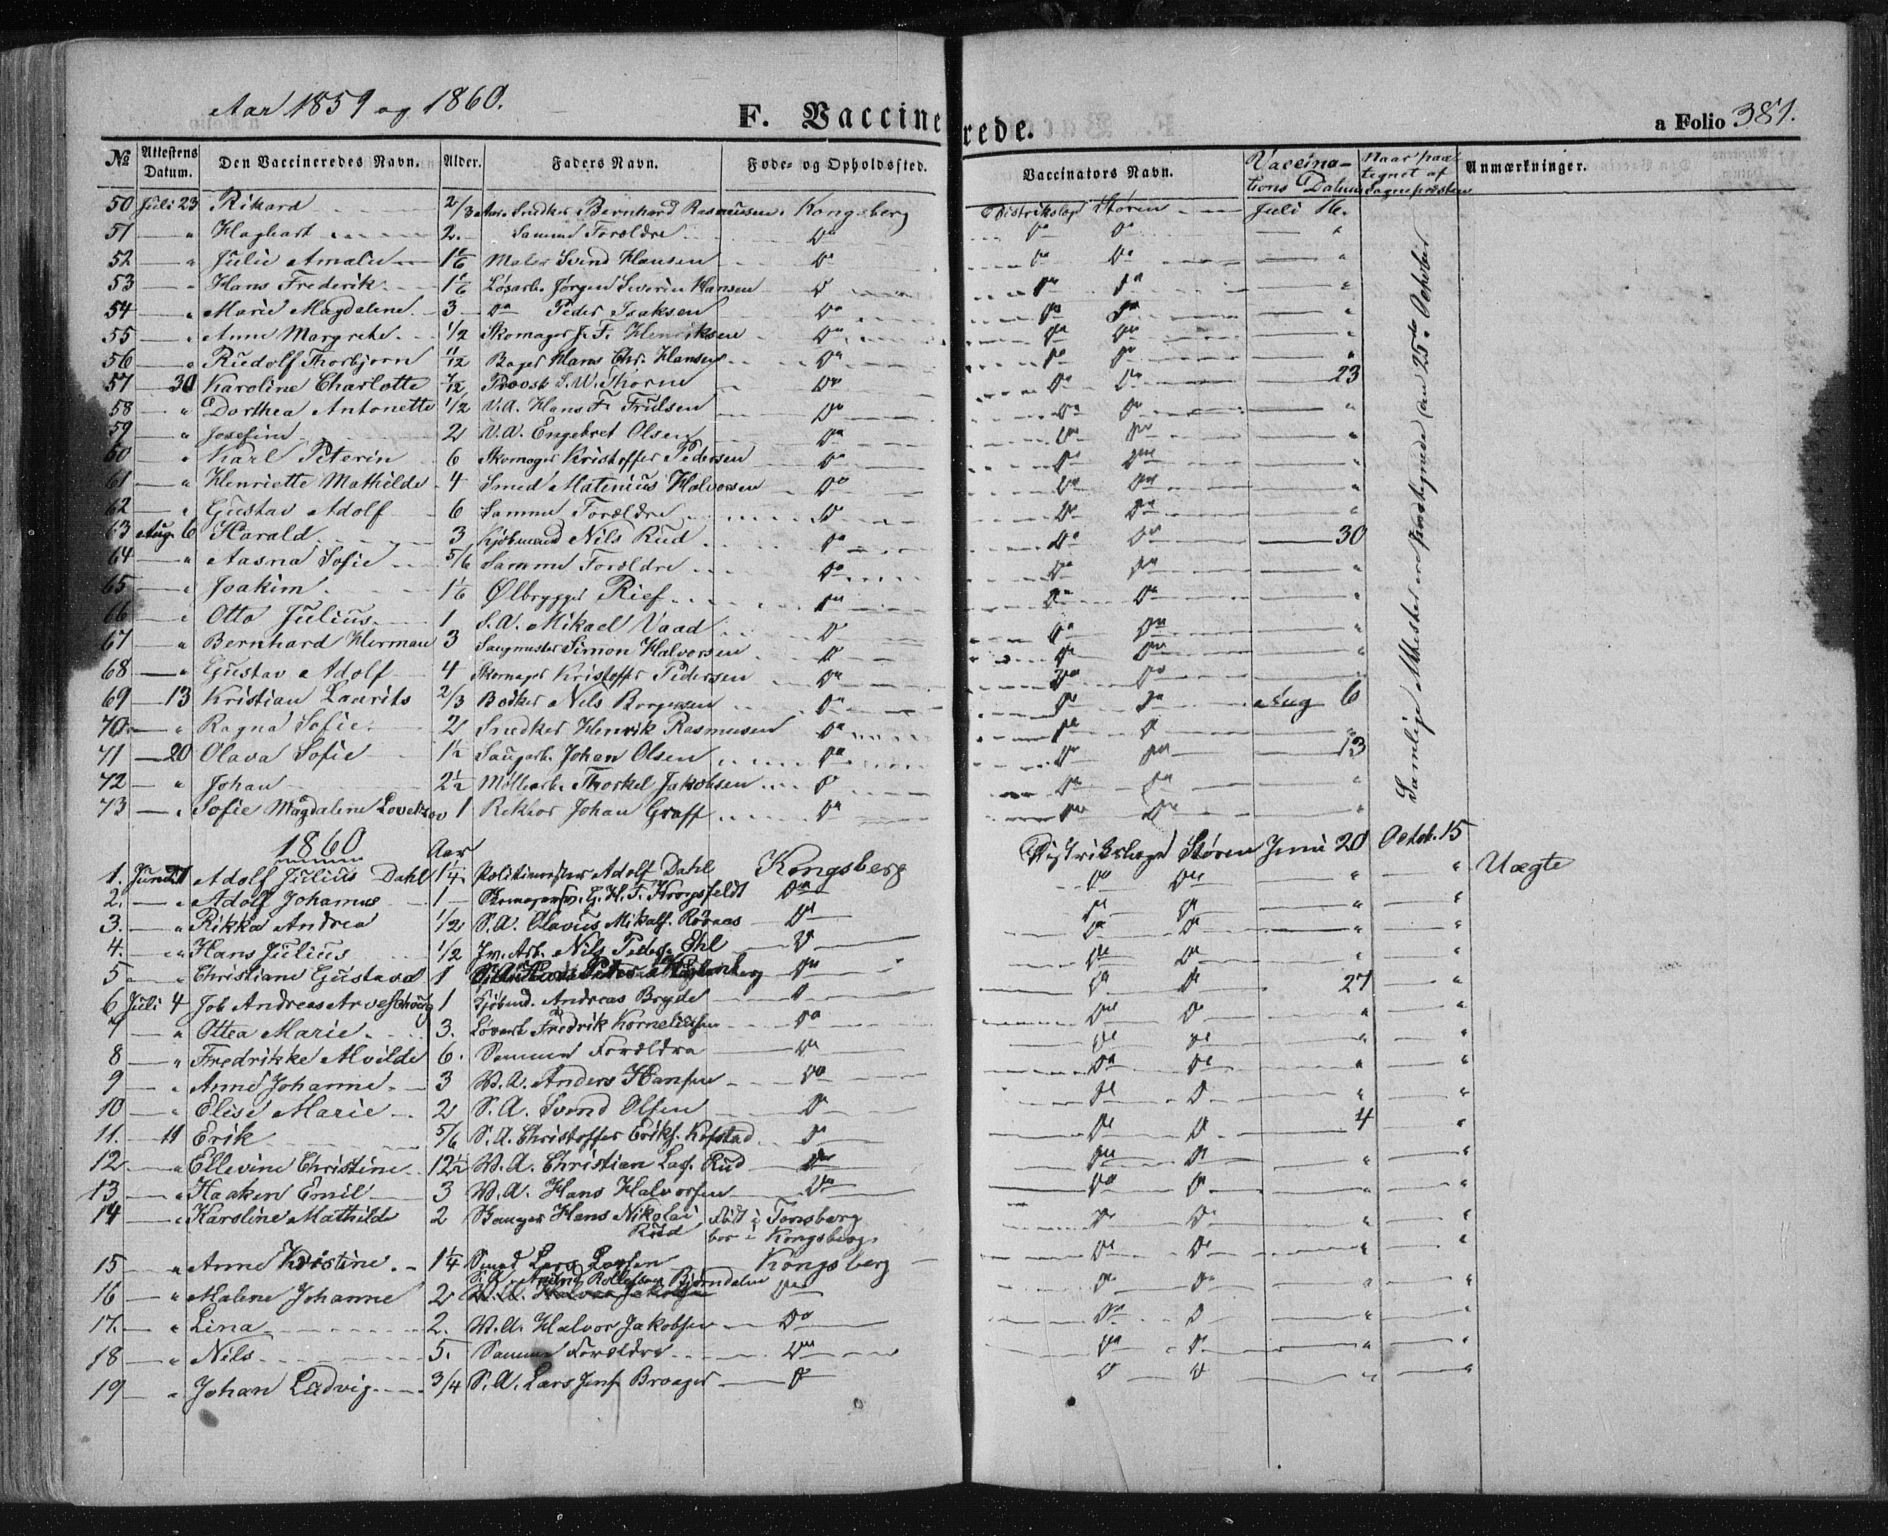 Aar 1859 og 1860.
F. Vaccinerede.
a Folio 381.
No Attestens Datum. Den Vaccineredes Navn. Alder. Faders Navn. Føde- og Opholdssted. Vaccinators Navn. Vaccinations Datum Naar paategnet af Sognepræsten Anmærkninger.
50 Juli 23 Rikard 2/3 Aar Snedker Bernhard Rasmussen Kongsberg Distriktslæge Støren Juli 16.
51 — " Haghart 2. Samme Forældre Do Do Do — "
52 — " Julie Amalie 1 1/6 Maler Svend Hansen Do Do Do — "
53 — " Hans Frederik 1 1/6 Løsarb. Jørgen Severin Hansen Do Do Do — "
54 — " Marie Magdalene 3 Do Peder Isaksen Do Do Do — "
55 — " Anne Margrethe 1/2 Skomager J. F. Henriksen Do Do Do — "
56 — " Rudolf Thorbjørn 11/12 Bager Hans Chr. Hansen Do Do Do — "
57 — 30 Karoline Charlotte 7/12 Provst S. W. Thorne Do Do Do — 23
58 — " Dorthea Antonette 1/2 V.A. Hans F. Frulsen Do Do Do — "
59 — " Josefine 2 V.A. Engebret Olsen Do Do Do — "
60 — " Karl Peterin 6 Skomager Kristoffer Pedersen Do Do Do — "
61 — " Henriette Mathilde 4 Smed Matenius Halvorsen Do Do Do — "
62 — " Gustav Adolf 6 Samme Forældre Do Do Do — "
63 Aug. 6 Harald 3 Kjøbmand Nils Rud Do Do Do — 30
64 — " Aasna Sofie 5/6 Samme Forældre Do Do Do — "
65 — " Joakim 1 1/6 Ølbrygger Rief Do Do Do — "
66 — " Otto Julius 1 S.A. Mikael Vaad Do Do Do — "
67 — " Bernhard Herman 3 Saugmester Simon Halvorsen Do Do Do — "
68 — " Gustav Adolf 4 Skomager Kristoffer Pedersen Do Do Do — "
69 — 13 Kristian Laurits 2/3 Bødker Nils Borgersen Do Do Do Aug 6
70 — " Ragna Sofie 2 Snedker Henrik Rasmussen Do Do Do
71 — 20 Olava Sofie 1 1/2 Saugarb. Johan Olsen Do Do Do — 13
72 — " Johan 2 1/2 Møllearb. Thorkel Jakobsen Do Do Do — "
73 — " Sofie Magdalene 1 Rektor Johan Graff Do Do Do — "
Samlige Attester ere paategnede den 25de October
1860 Aar
1. Juni 21 Adolf Julius Dahl 1 1/4 Politimester Adolf Dahl Kongsberg Distriktslæge Støren Juni 20 Octob. 15
2. — " Adolf Johannes 1 G. H. F. Krogsfeldt Do Do Do — " — " Uægte
3. — " Rikka Andrea 1/2 S.A. Olavus Mikalf. Røraas Do Do Do — " — "
4. — " Hans Julius 1/2 Nils Peders. Øhl Do Do Do — " — "
5 — " Christiane Gustava 1 Do Do Do — " — "
6 Juli 4 Joh. Andreas 1 Kjøbmd. Andreas Bryde Do Do Do 27 — "
7 — " Ottea Marie 3. Løsarb. Fredrik Kornelius Do Do Do — " — "
8 — " Fredrikke Alvilde 6. Samme Forældre Do Do Do — " — "
9 — " Anne Johanne 3 V.A. Anders Hansen Do Do Do — " — "
10 — " Elise Marie 2 S.A. Svend Olsen Do Do Do — " — "
11. — 11 Erik 5/6 S.A. Christoffer Eriks. Kofstad Do Do Do — 4 — "
12 — " Ellevine Christine 12 1/2 V.A. Christian Las. Rud Do Do Do — " — "
13 — " Haaken Emil 3 V.A. Hans Halvorsen Do Do Do — " — "
14 — " Karoline Mathilde 2 Hans Nikolai Rud Født i Tønsberg bor i Kongsberg Do Do — " — "
15 — " Anne Kristine 1 1/4 Smed Lars Larsen Kongsberg Do Do — " — "
16 — " Malene Johanne 2 S.A. Bjørndalen Do Do Do — " — "
17. — " Lina 2. V.A. Halvor Jakobsen Do Do Do — " — "
18 — " Nils 5. Samme Forældre Do Do Do — " — "
19 — " Johan Ludvig 3/4 S.A. Lars Jens. Braager Do Do Do — " — "